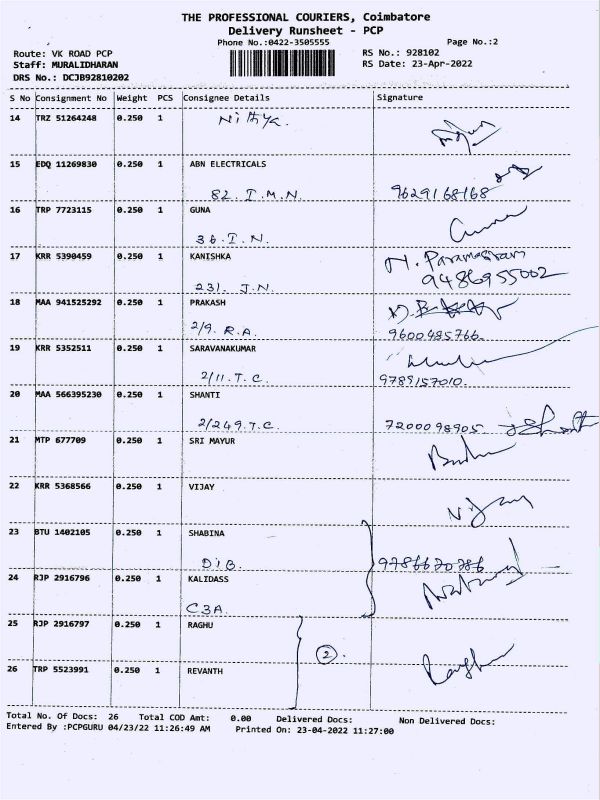 THE PROFESSIONAL COURIERS, Coimbatore
Delivery Runsheet - PCP
Phone No.:0422-3505555 Page No.:2
Route: VK ROAD PCP RS No.: 928102
Staff: MURALIDHARAN RS Date: 23-Apr-2022
DRS No.: DCJB92810202
S No Consignment No Weight PCS Consignee Details Signature
14 TRZ 51264248 0.250 1 Nithya.
15 EDQ 11269830 0.250 1 ABN ELECTRICALS
82. I.M.N. 9629168168
16 TRP 7723115 0.250 1 GUNA
36.I.N.
17 KRR 5390459 0.250 1 KANISHKA
231. J.N. 9486955002
18 MAA 941525292 0.250 1 PRAKASH
2/9. R.A. 9600485766.
19 KRR 5352511 0.250 1 SARAVANAKUMAR
2/11.T.C. 9789157010.
20 MAA 566395230 0.250 1 SHANTI
2/249.T.C. 7200098905.
21 MTP 677709 0.250 1 SRI MAYUR
22 KRR 5368566 0.250 1 VIJAY
Vijay
23 BTU 1402105 0.250 1 SHABINA
D1B.
24 RJP 2916796 0.250 1 KALIDASS
C3A.
25 RJP 2916797 0.250 1 RAGHU
2.
26 TRP 5523991 0.250 1 REVANTH
Total No. Of Docs: 26 Total COD Amt: 0.00 Delivered Docs: Non Delivered Docs:
Entered By :PCPGURU 04/23/22 11:26:49 AM Printed On: 23-04-2022 11:27:00